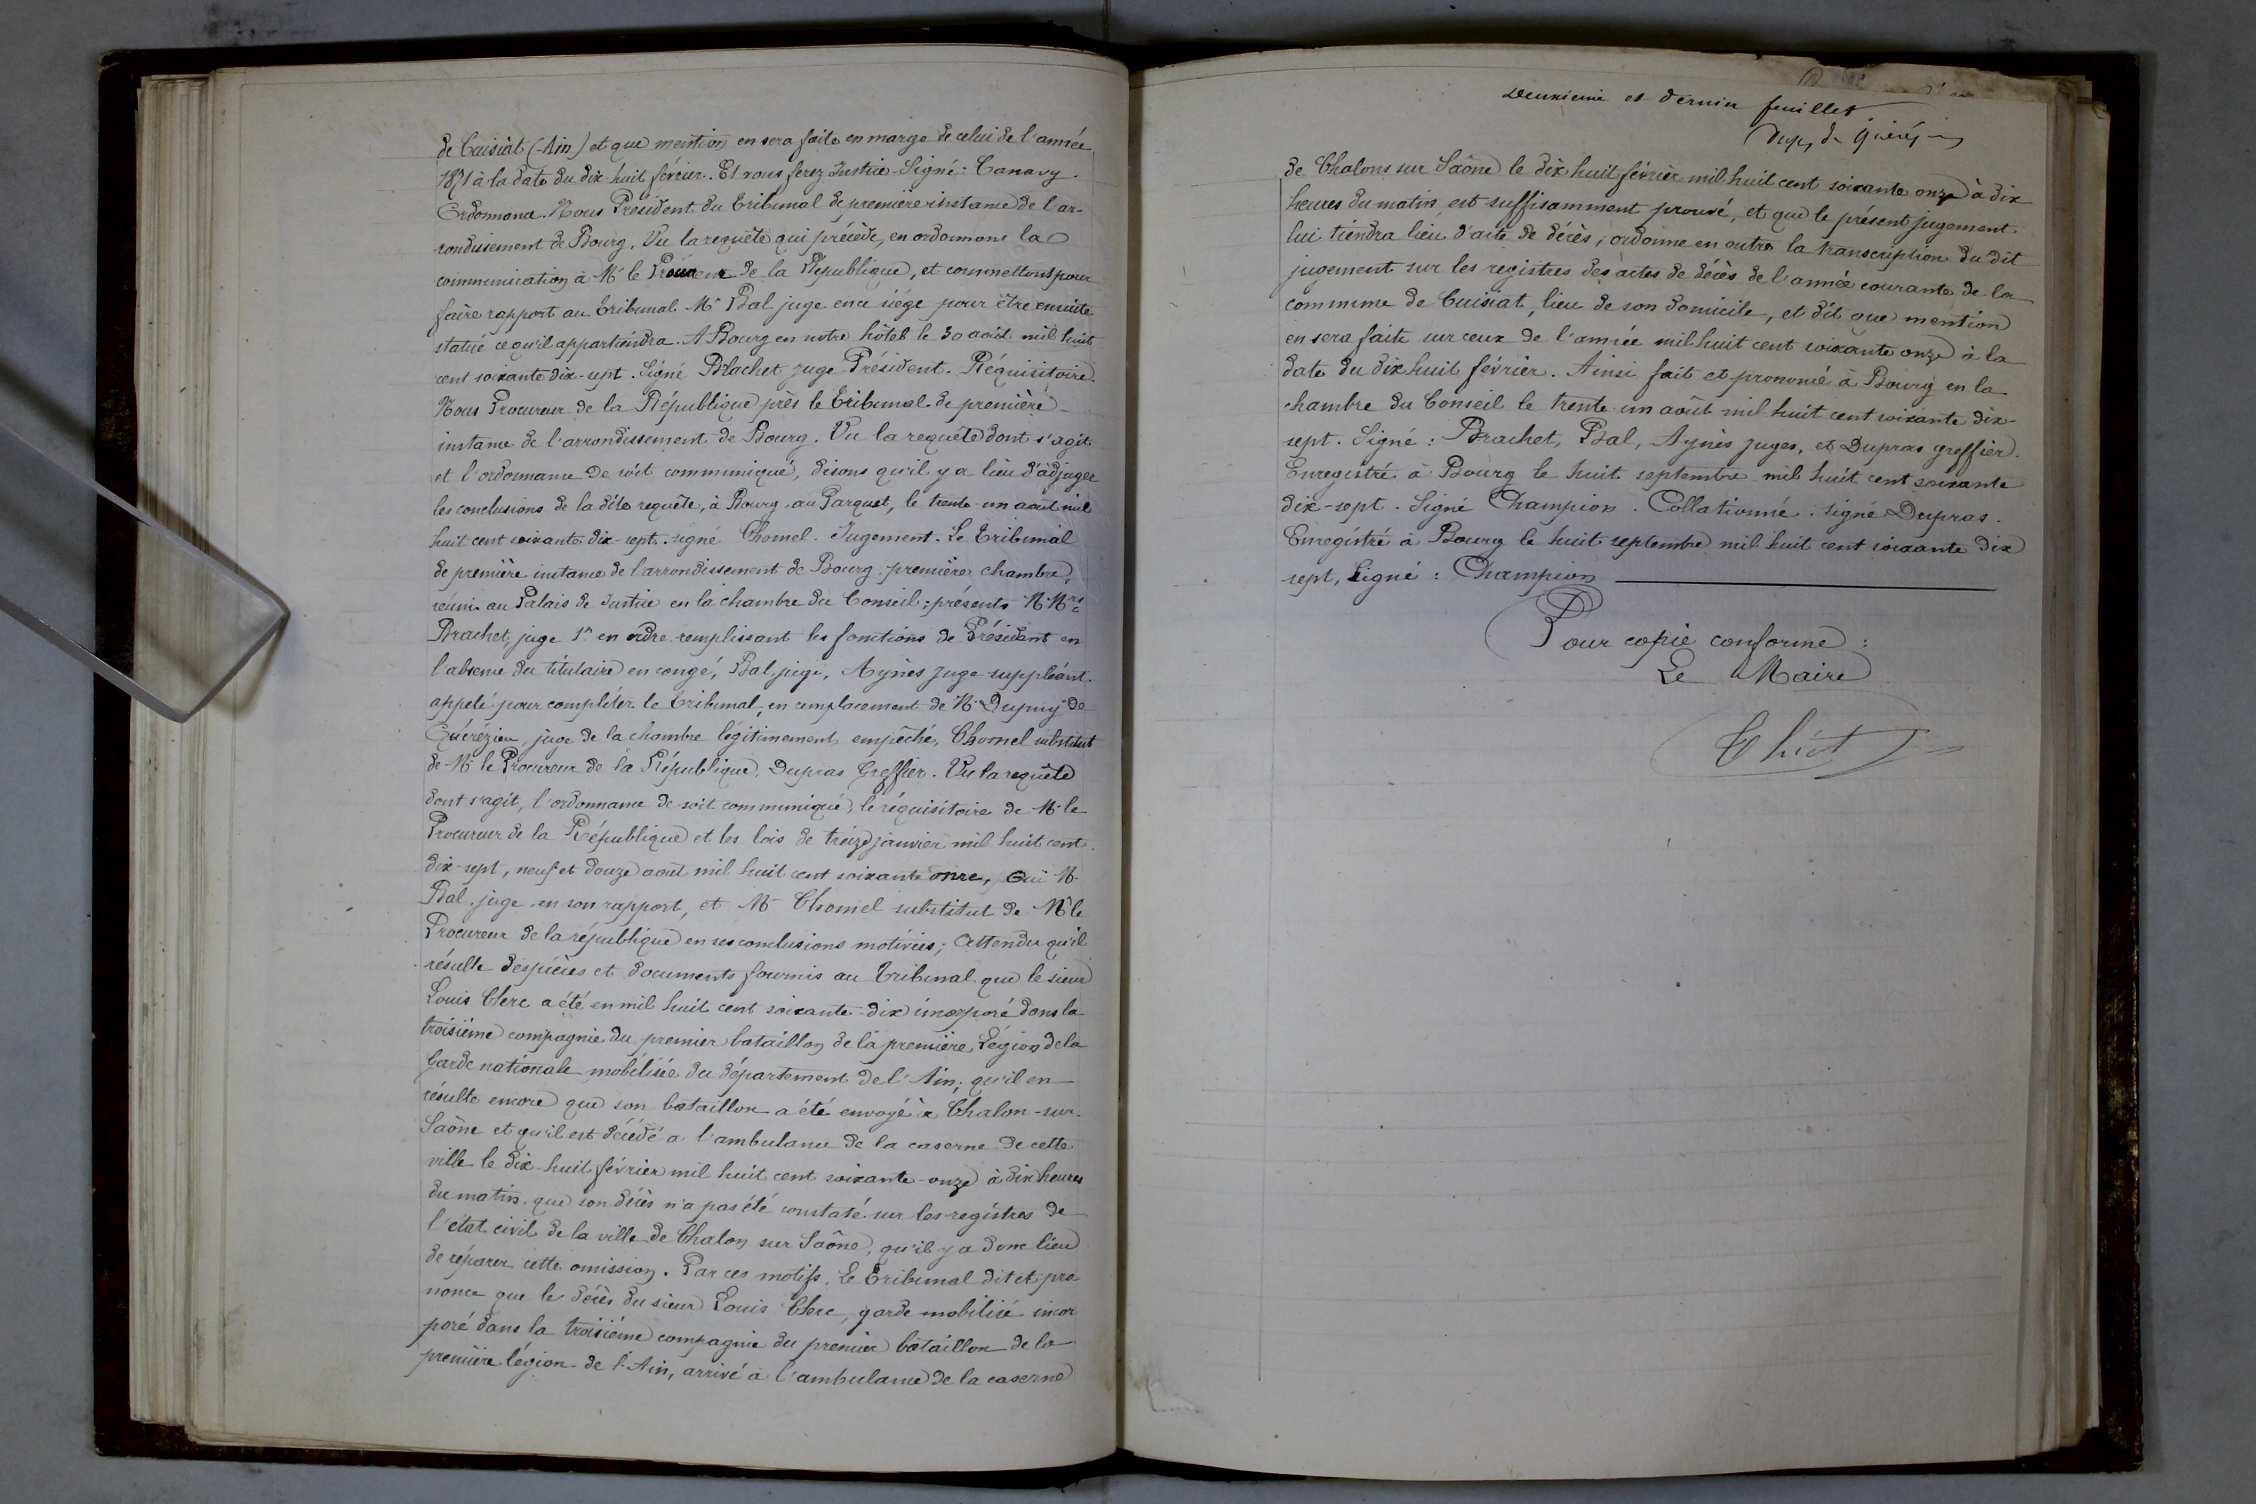 de Cuisiat (Ain) et que mention en sera faite en marge de celui de l'année
1871 à la date du dix-huit février. Et vous ferez Justice. Signé: Canavy.
Ordonnance. Nous Président du Tribunal de première instance de l'ar-
rondissement de Bourg. Vu la requête qui précède, en ordonnons la
communication à Mr le Procureur de la République, et commettons pour
faire rapport au Tribunal Mr Bal juge en ce siége pour être ensuite
statué ce qu'il appartiendra. A Bourg en notre hôtel le 30 août mil huit
cent soixante dix-sept. Signé Brachet juge Président. Réquisitoire.
Nous Procureur de la République près le Tribunal de première
instance de l'arrondissement de Bourg. Vu la requête dont s'agit
et l'ordonnance de soit communiqué, disons qu'il y a lieu d'adjuger
les conclusions de la dite requête, à Bourg, au Parquet, le trente-un août mil
huit cent soixante-dix-sept. signé Chomel. Jugement. Le Tribunal
de première instance de l'arrondissement de Bourg, première chambre,
réuni au Palais de Justice en la chambre du Conseil; présents M.Mrs
Brachet, juge 1er en ordre remplissant les fonctions de Président en
l'absence du titulaire en congé, Bal, juge, Aynès juge suppléant
appelé pour compléter le Tribunal, en remplacement de M. Dupuy de
Quérézieu, juge de la chambre légitimement empêché, Chomel substitut
de Mr le Procureur de la République, Dupras Greffier. Vu la requête
dont s'agit, l'ordonnance de soit communiqué, le réquisitoire de Mr le
Procureur de la République et les lois de treize janvier mil huit cent
dix-sept, neuf et douze août mil huit cent soixante onze, Oui M.
Bal juge en son rapport, et Mr Chomel substitut de Mr le
Procureur de la république en ses conclusions motivées; Attendu qu'il
résulte des pièces et documents fournis au Tribunal que le sieur
Louis Clerc a été en mil huit cent soixante-dix incorporé dans la
troisième compagnie du premier bataillon de la première Légion de la
Garde nationale mobilisée du département de l'Ain; qu'il en
résulte encore que son bataillon a été envoyé à Chalon-sur-
Saône et qu'il est décédé a l'ambulance de la caserne de cette
ville le dix-huit février mil huit cent soixante-onze à dix heures
du matin. que son décès n'a pas été constaté sur les registres de
l'état civil de la ville de Chalon sur Saône, qu'il y a donc lieu
de réparer cette omission. Par ces motifs. Le Tribunal dit et pro
nonce que le décès du sieur Louis Clerc, garde mobilisé incor
poré dans la troisième compagnie du premier bataillon de la
première légion de l'Ain, arrivé à l'ambulance de la caserne
Deuxieme et dernier feuillet
Dupuy de Quérézieu
de Chalons sur Saône le dix huit février mil huit cent soixante onze à dix
heures du matin est suffisamment prouvé, et que le présent jugement
lui tiendra lieu d'acte de décès; ordonne en outre la transcription du dit
jugement sur les registres des actes de décès de l'année courante de la
commune de Cuisiat, lieu de son domicile, et dit que mention
en sera faite sur ceux de l'année mil huit cent soixante onze à la
date du dix huit février. Ainsi fait et prononcé à Bourg en la
chambre du Conseil le trente-un août mil huit cent soixante dix-
sept. Signé: Brachet, Bal, Aynès juges, et Dupras greffier.
Enregistré à Bourg le huit septembre mil huit cent soixante
dix-sept. Signé Champion. Collationné: signé Dupras.
Enregistré à Bourg le huit septembre mil huit cent soixante dix
sept, Signé: Champion
Pour copie conforme:
Le Maire